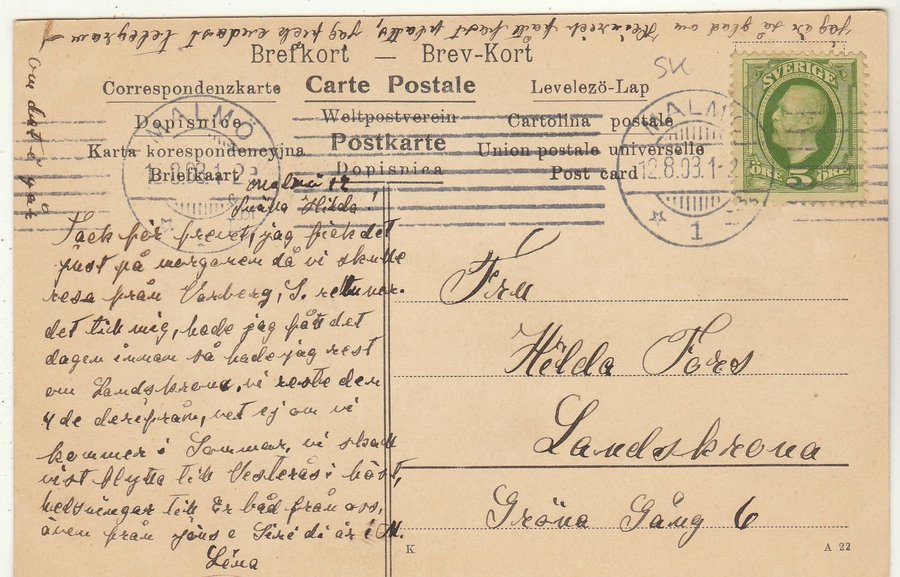 Jag är så glad om Heinrich fått fast plats, jag fick endast telegram
om det i går
SK
Brefkort — Brev-Kort
Correspondenzkarte Carte Postale Levelezö-Lap
Dopisnice Weltpostverein Cartolina postale
Karta korespondencyjna Postkarte Union postale universelle
Briefkaart Dopisnica Post card
SVERIGE
ÖRE 5 ÖRE
MALMÖ
MALMÖ
12.8.03.1-2
1
Malmö 12
Snälla Hilda!
Tack för brevet, jag fick det
just på morgonen då vi skulle
resa från Varberg, S.
det till mig, hade jag fått det
dagen innan så hade jag rest
om Landskrona, vi reste den
4 de derifrån, vet ej om vi
kommer i Sommar, vi skall
visst flytta till Vesterås i höst,
helsningar till Er båd från oss,
även från jöns e Siri di är i M.
Léna
Fru
Hilda Fors
Landskrona
Gröna Gång 6
K
A 22